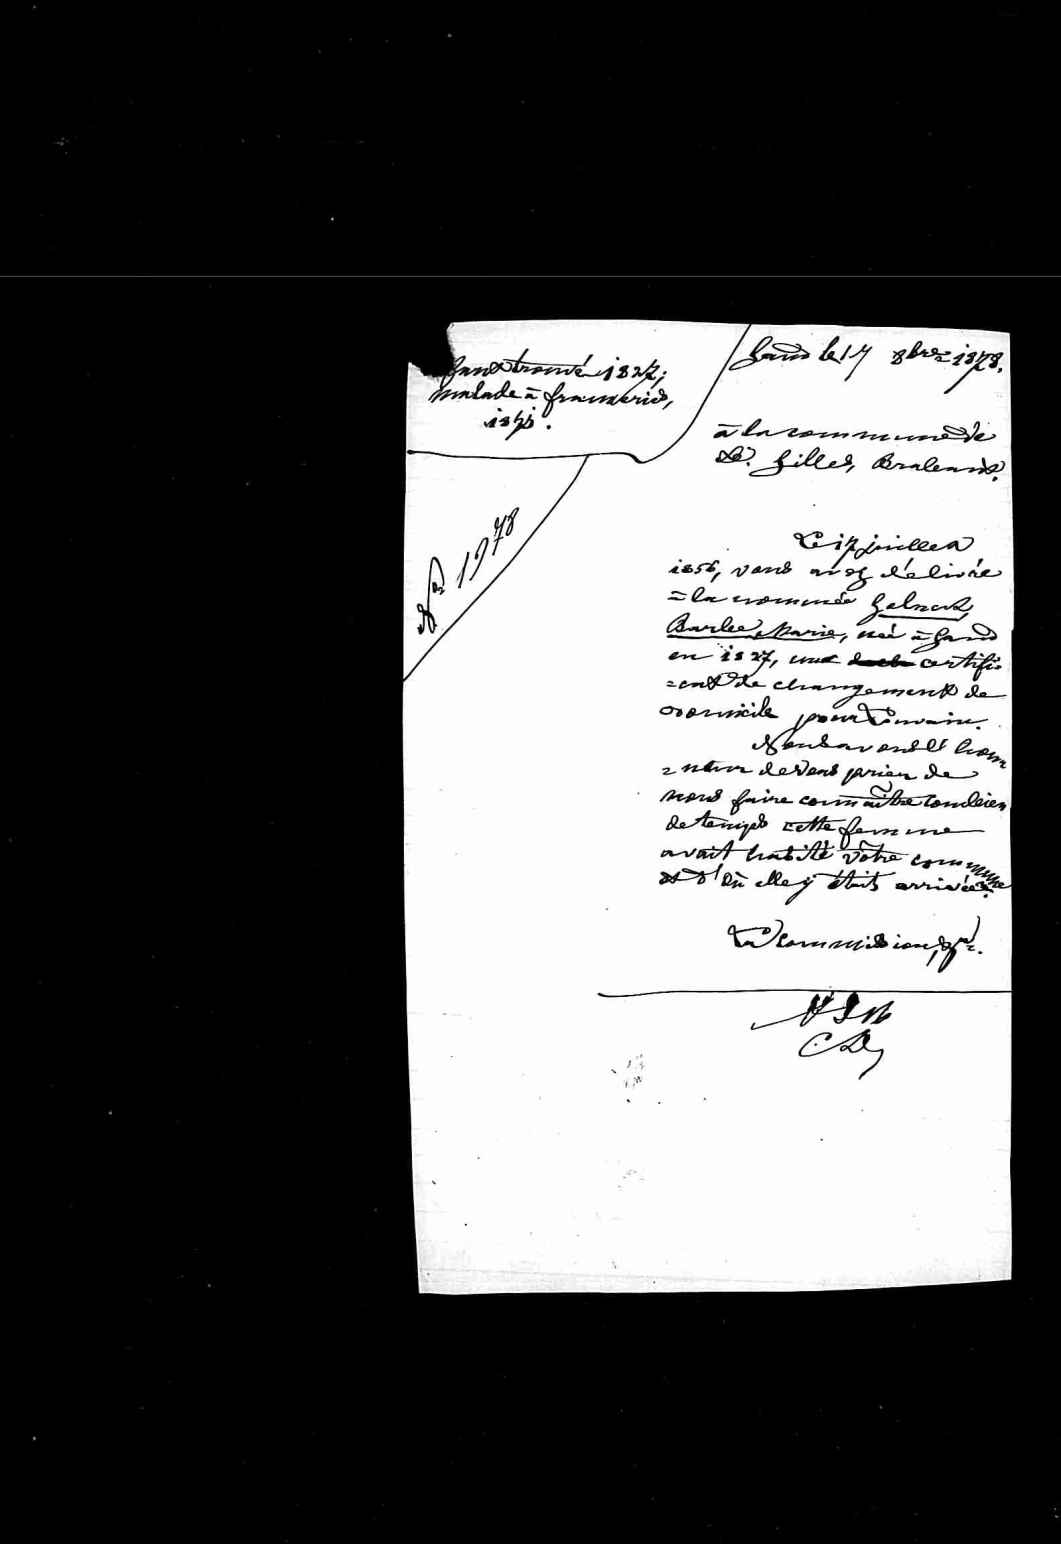 Enfant trouvé 1827;
malade à frameries,
187
Gand le 17 8bre 1878.
à la commune de
St. Gilles, Brabant.
N° 1978
Le 17 juillet
1856, vous avez délivré
= à la nommée
Marie, née à Gand
en 1827, un certifi=
=cat de changement de
domicile pour Louvain.
Nous avons l'hon
=neur de vous prier de
nous faire connaître combien
de temps cette femme
avait habité vôtre commune
et d'où elle y était arrivée.
La Commission, &a.